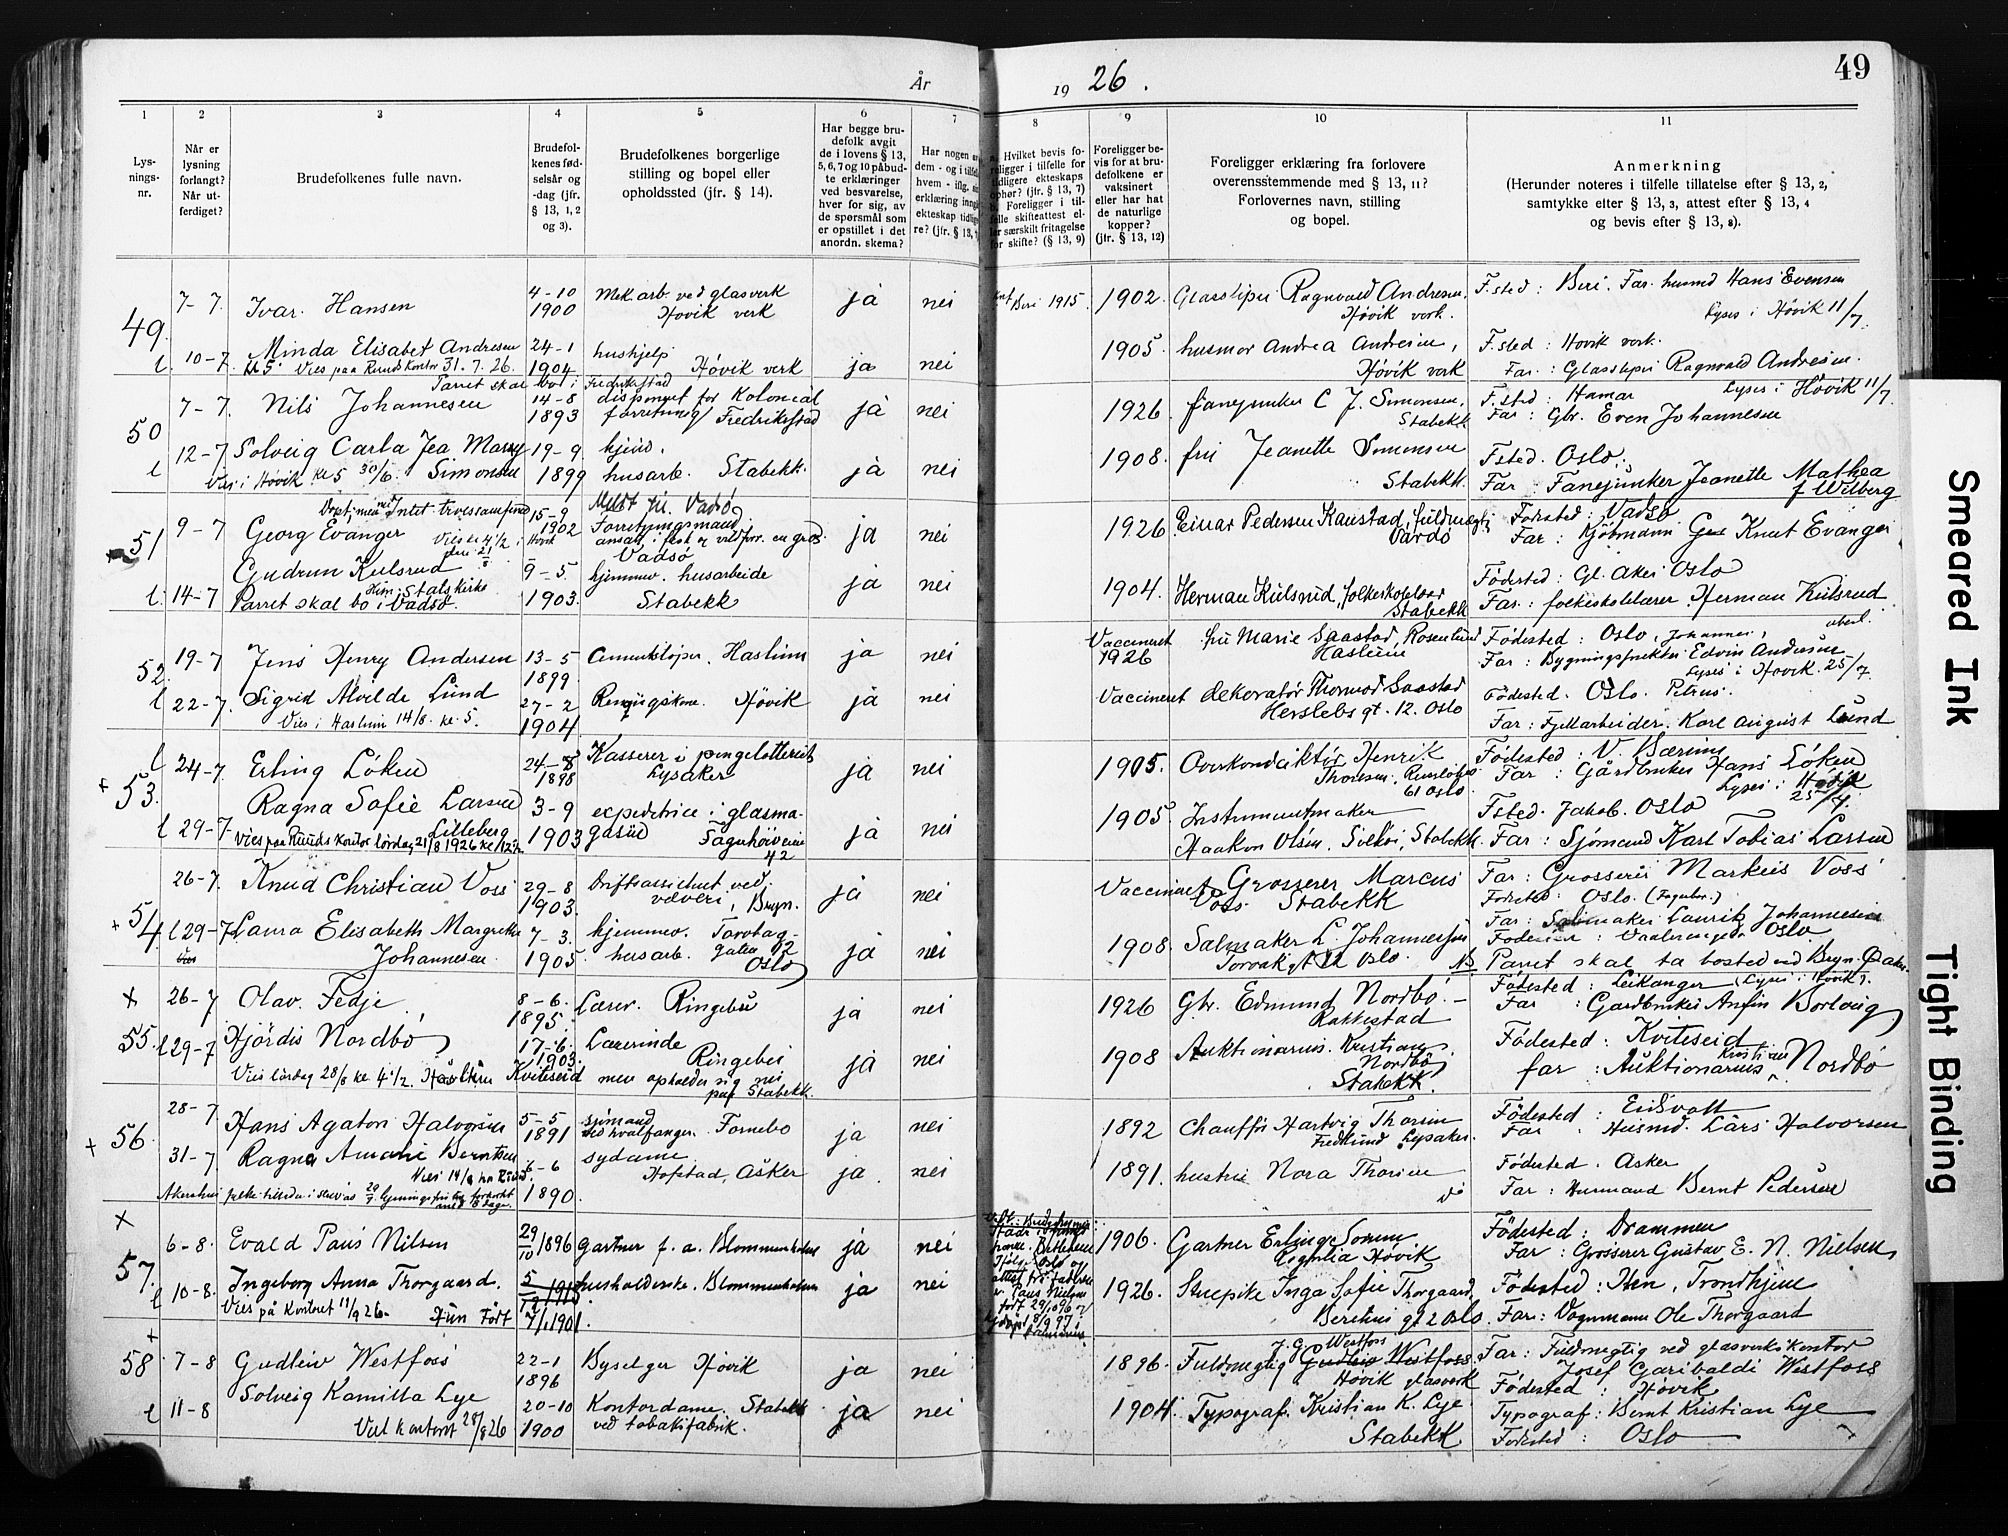 År
19 26.
49
1
2
3
4
5
6
7
8
9
10
11
Lys-
nings-
nr.
Når er
lysning
forlangt?
Når ut-
ferdiget?
Brudefolkenes fulle navn.
Brudefol-
kenes fød-
selsår og
-dag (jfr.
§ 13, 1, 2
og 3).
Brudefolkenes borgerlige
stilling og bopel eller
opholdssted (jfr. § 14).
Har begge bru-
defolk avgit
de i lovens § 13,
5, 6, 7 og 10 påbud-
te erklæringer
ved besvarelse,
hver for sig, av
de spørsmål som
er opstillet i det
anordn. skema?
Har nogen
dem - og i
hvem - iflg.
erklæring
ekteskap
re? (jfr. § 13,
Hvilket bevis fo-
religger i tilfelle for
tidligere ekteskaps
ophør? (jfr. § 13, 7)
Foreligger i til-
felle skifteattest el-
ler særskilt fritagelse
for skifte? (§ 13, 9)
Foreligger be-
vis for at bru-
defolkene er
vaksinert
eller har hat
de naturlige
kopper?
(jfr. § 13, 12)
Foreligger erklæring fra forlovere
overensstemmende med § 13, 11?
Forlovernes navn, stilling
og bopel.
Anmerkning
(Herunder noteres i tilfelle tillatelse efter § 13, 2,
samtykke efter § 13, 3, attest efter § 13, 4
og bevis efter § 13, 8).
49. 7-7. Ivar Hansen 4-10 1900 Mek.arb. ved glasverk Høvik verk ja nei Biri 1915. 1902. Glassliper Ragnvald Andresen, Høvik verk. F.sted: Biri. Far. husmd Hans Evensen
Lyses i Høvik 11/7.
l. 10-7. Minda Elisabet Andresen 24-1 1904 hushjelp Høvik verk ja nei 1905. husmor Andrea Andresen, Høvik verk F.sted: Høvik verk.
Kl 5. Vies paa Ruuds Kontor 31.7.26. Far: Glassliper Ragnvald Andresen.
Parret skal bo i Fredrikstad
50 7-7. Nils Johannesen 14-8 1893 disponent for Kolonial forretning Fredrikstad ja nei 1926. fanejunker C J. Simonsen, Stabekk F.sted: Hamar Lyses i Høvik 11/7.
Far: Gbr. Even Johannesen
l 12-7 Solveig Carla Jea Massy Simonsen 19-9. 1899 hjem. husarb. Stabekk. ja nei 1908. fru Jeanette Simonsen Stabekk. Fsted. Oslo.
Vies i Høvik kl 5 Far Fanejunker Jeanette Mathea f Wilberg
51 9-7 Georg Evanger 15-9 1902 Forretningsmand Vadsø ja nei 1926. Einar Pedersen Kaustad, fuldmegtig Vardø Fødested: Vadsø
Far: Kjøbmann Knut Evanger
l. 14-7 Gudrun Kulsrud 9-5. 1903. hjemmev. husarbeide Stabekk ja nei 1904. Herman Kulsrud, folkeskolelærer Stabekk Fødested: Gl. Aker Oslo
Parret skal bo i Vadsø. Far: folkeskolelærer Herman Kulsrud
52. 19-7 Jens Henry Andersen 13-5 1899. Haslum ja nei Vaccineret 1926 fru Marie Saastad, Rosenlund Haslum Fødested: Oslo, Johannes,
Far: Edvin Andersen
Lyses i Høvik. 25/7.
l 22-7. Sigrid Alvilde Lund 27-2 1904 Høvik ja nei Vaccineret dekoratør Thorvod Saastad Herslebs gt. 12. Oslo Fødested. Oslo. Petrus.
Vies i Haslum 14/8. kl. 5. Far: Fjellarbeider. Karl August Lund
+ 53. l 24-7. Erling Løken 24-8 1898 Kasserer i pengelotteriet Lysaker ja nei 1905. Overkonduktør Henrik Thoresen 61 Oslo. Fødested: V. Bærum
Far: Gårdbruker Hans Løken
Lyses i Høvik 25/7.
l 29-7. Ragna Sofie Larsen Lilleberg 3-9 1903 expeditrice i glasmagasin Fagerhøiveien 42 ja nei 1905. Instrumentmaker Haakon Olsen. Solhøi, Stabekk. Fsted. Jakob. Oslo
Vies paa Ruuds kontor lørdag 21/8 1926 kl 12½ Far: Sjømand Karl Tobias Larsen
+ 54. 26-7. Knud Christian Voss 29-8 1903. Driftsassistent ved veveri, Bryn. ja nei Vaccineret Grosserer Marcus Voss. Stabekk Far: Grosserer Markus Voss
Fødested: Oslo. (Fagerbor.)
l 29-7. Laura Elisabeth Margrethe Johannesen. 7-3. 1905. hjemmev. husarb. Torvbakgaten 12 Oslo ja nei 1908. Salmaker L Johannessen Torvbakgt 12 Oslo. Far: Salmaker Laurits Johannesen
Vies Vaalerengen Oslo
NB Parret skal ta bosted ved Bryn. Ø. Aker.
(Lyses i Høvik).
x 55. 26-7 Olav Fedje 8-6. 1895. Lærer. Ringebu ja nei 1926 Gbr. Edmund Nordbø - Rakkestad Fødested: Leikanger
Far: Gardbruker Anfin Borlaug
l 29-7 Hjørdis Nordbø 17-6. 1903. Lærerinde Ringebu men opholder sig nu paa Stabekk. ja nei 1908 Auktionarius. Kristian Nordbø Stabekk. Fødested: Kviteseid
Vies lørdag 28/8 kl 4½. Haslum Kviteseid far: Auktionarius Kristian Nordbø
+ 56. 28-7 Hans Agaton Halvorsen 5-5 1891 sjømand ved hvalfanger. Fornebo ja nei 1892 Chauffør Hartvig Thoresen Fredlund Lysaker. Fødested: Eidsvoll
Far: Husmd. Lars Halvorsen
31-7 Ragna Amanie Berntsen 6-6 1890. sydame Hofstad, Asker ja. nei 1891. hustru Nora Thoresen Fødested. Asker
Far: Husmand Bernt Pedersen
x 57. 6-8. Evald Paus Nilsen 29/10 1896 gartner f. a. Blommenholm ja nei 1906. Gartner Erling Sørum Høvik Fødested: Drammen
Far: Grosserer Gustav E. N. Nielsen,
l 10-8. Ingeborg Anna Thorgaard. husholderske. Blommenholm ja nei 1926. Skuepike Inga Sofie Thorgaard, Berthius gt 2 Oslo. Fødested: Ilen, Trondhjem
Vies på Kontoret 11/9 26. Hun Født 7/1 1901. Far: Vognmann Ole Thorgaard
+ 58 7-8 Gudleiv Westfoss 22-1 1896 Byselger Høvik ja nei 1896. Fuldmegtig J.G. Westfoss Høvik glasverk Far: Fuldmegtig ved glasverkskontor
Josef Garibaldi Westfoss
Fødested: Høvik
l 11-8 Solveig Kamilla Lye 20-10 1900 Kontordame. Stabekk ved tobakfabrik. ja nei 1904. Typograf. Kristian K. Lye Stabekk Typograf: Bernt Kristian Lye
Viet kontoret 28/8 26 Fødested: Oslo
Smeared Ink
Tight Binding